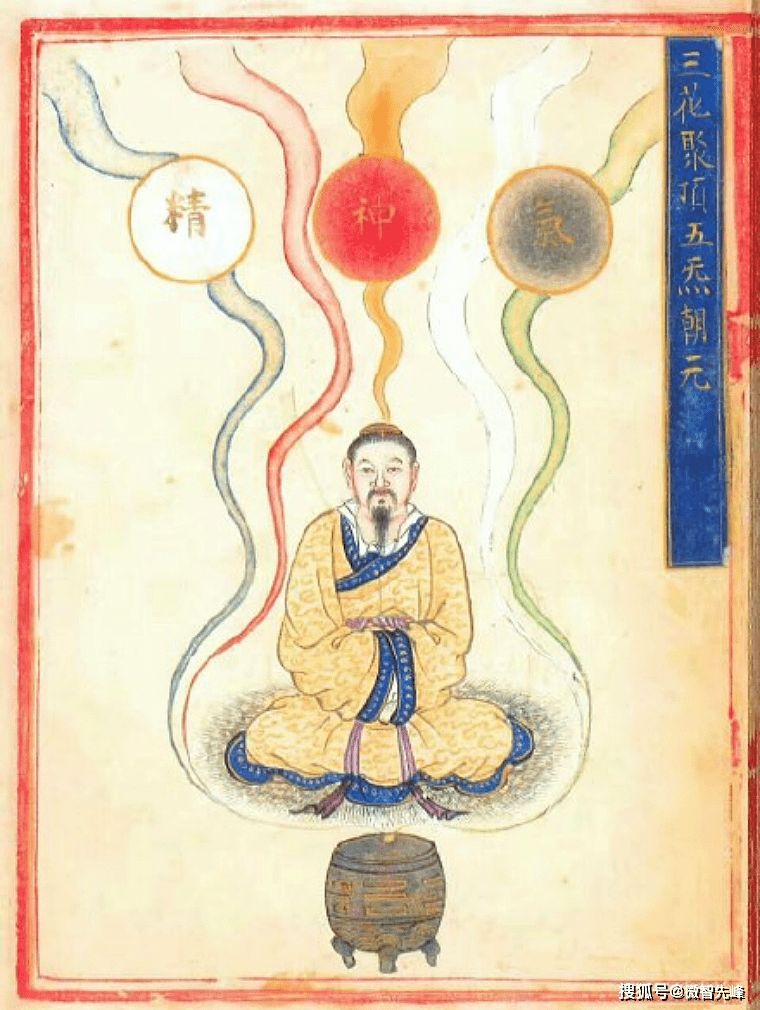 三花聚頂五炁朝元
精
神
氣
搜狐号@微智先峰